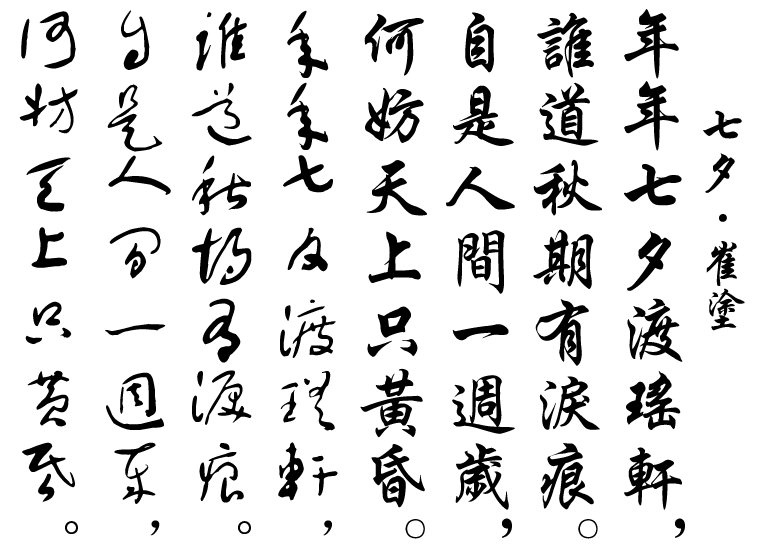 七夕·崔塗
年年七夕渡瑤軒，
誰道秋期有淚痕。
自是人間一週歲，
何妨天上只黃昏。
年年七夕渡瑤軒，
誰道秋期有淚痕。
自是人間一週歲，
何妨天上只黃昏。